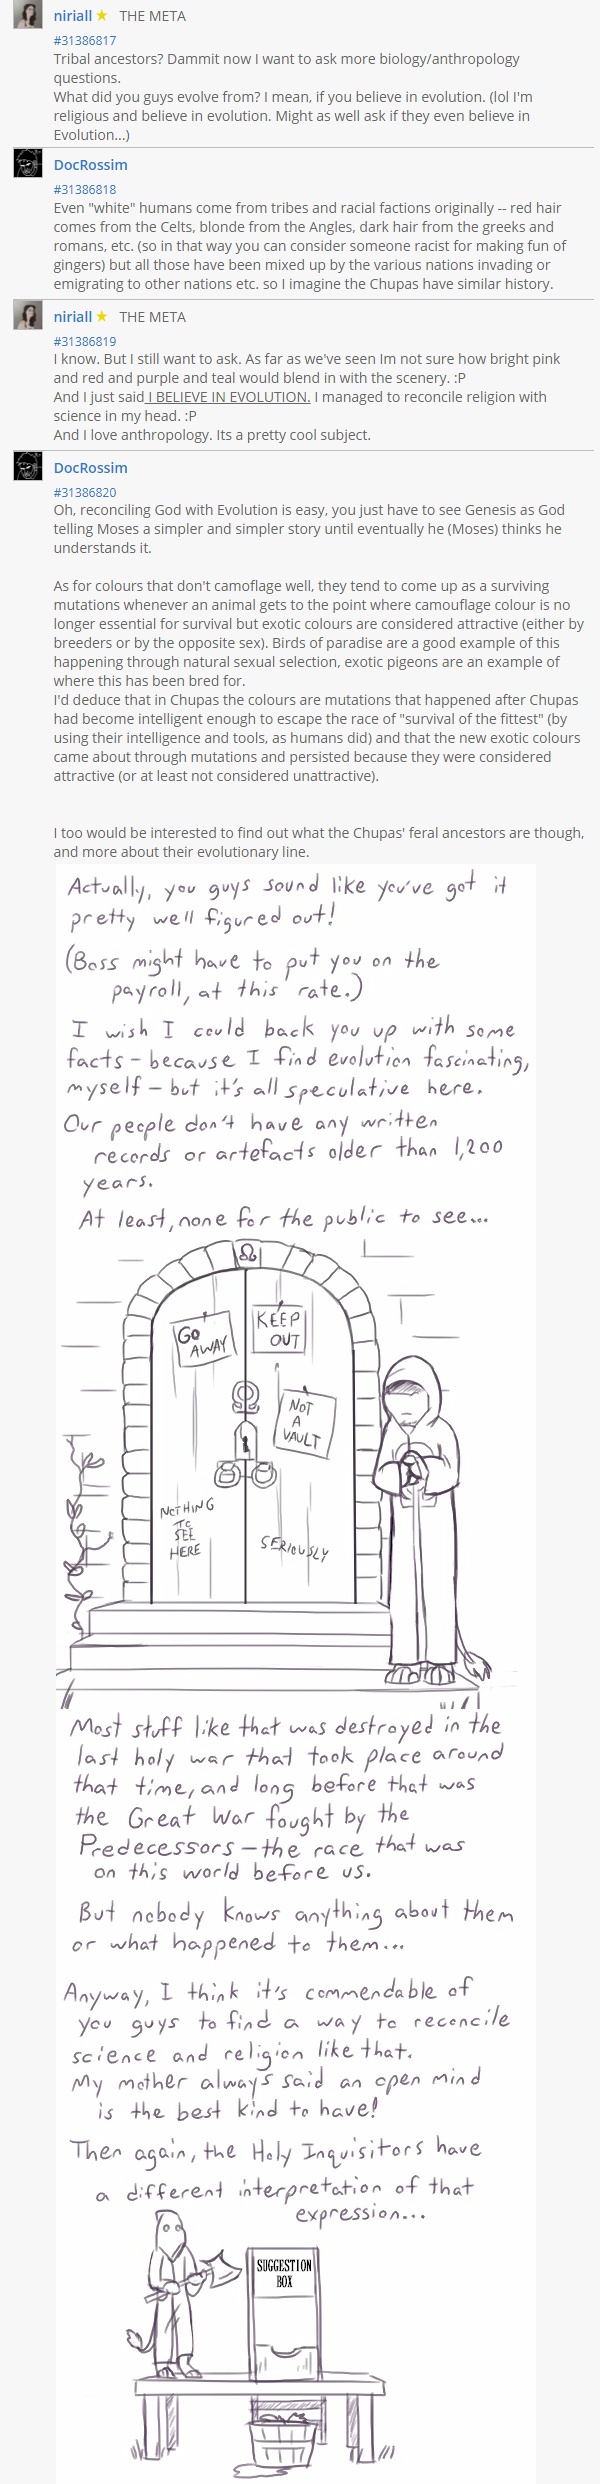 niriall ★ THE META
#31386817
Tribal ancestors? Dammit now I want to ask more biology/anthropology
questions.
What did you guys evolve from? I mean, if you believe in evolution. (lol I'm
religious and believe in evolution. Might as well ask if they even believe in
Evolution...)
DocRossim
#31386818
Even "white" humans come from tribes and racial factions originally -- red hair
comes from the Celts, blonde from the Angles, dark hair from the greeks and
romans, etc. (so in that way you can consider someone racist for making fun of
gingers) but all those have been mixed up by the various nations invading or
emigrating to other nations etc. so I imagine the Chupas have similar history.
niriall ★ THE META
#31386819
I know. But I still want to ask. As far as we've seen Im not sure how bright pink
and red and purple and teal would blend in with the scenery. :P
And I just said I BELIEVE IN EVOLUTION. I managed to reconcile religion with
science in my head. :P
And I love anthropology. Its a pretty cool subject.
DocRossim
#31386820
Oh, reconciling God with Evolution is easy, you just have to see Genesis as God
telling Moses a simpler and simpler story until eventually he (Moses) thinks he
understands it.
As for colours that don't camoflage well, they tend to come up as a surviving
mutations whenever an animal gets to the point where camouflage colour is no
longer essential for survival but exotic colours are considered attractive (either by
breeders or by the opposite sex). Birds of paradise are a good example of this
happening through natural sexual selection, exotic pigeons are an example of
where this has been bred for.
I'd deduce that in Chupas the colours are mutations that happened after Chupas
had become intelligent enough to escape the race of "survival of the fittest" (by
using their intelligence and tools, as humans did) and that the new exotic colours
came about through mutations and persisted because they were considered
attractive (or at least not considered unattractive).
I too would be interested to find out what the Chupas' feral ancestors are though,
and more about their evolutionary line.
Actually, you guys sound like you've got it
pretty well figured out!
(Boss might have to put you on the
payroll, at this rate.)
I wish I could back you up with some
facts - because I find evolution fascinating,
myself - but it's all speculative here.
Our people don't have any written
records or artefacts older than 1,200
years.
At least, none for the public to see...
Ω
GO
AWAY
KEEP
OUT
NOT
A
VAULT
NOTHING
TO
SEE
HERE
SERIOUSLY
Most stuff like that was destroyed in the
last holy war that took place around
that time, and long before that was
the Great War fought by the
Predecessors - the race that was
on this world before us.
But nobody knows anything about them
or what happened to them...
Anyway, I think it's commendable of
you guys to find a way to reconcile
science and religion like that.
My mother always said an open mind
is the best kind to have!
Then again, the Holy Inquisitors have
a different interpretation of that
expression...
SUGGESTION
BOX